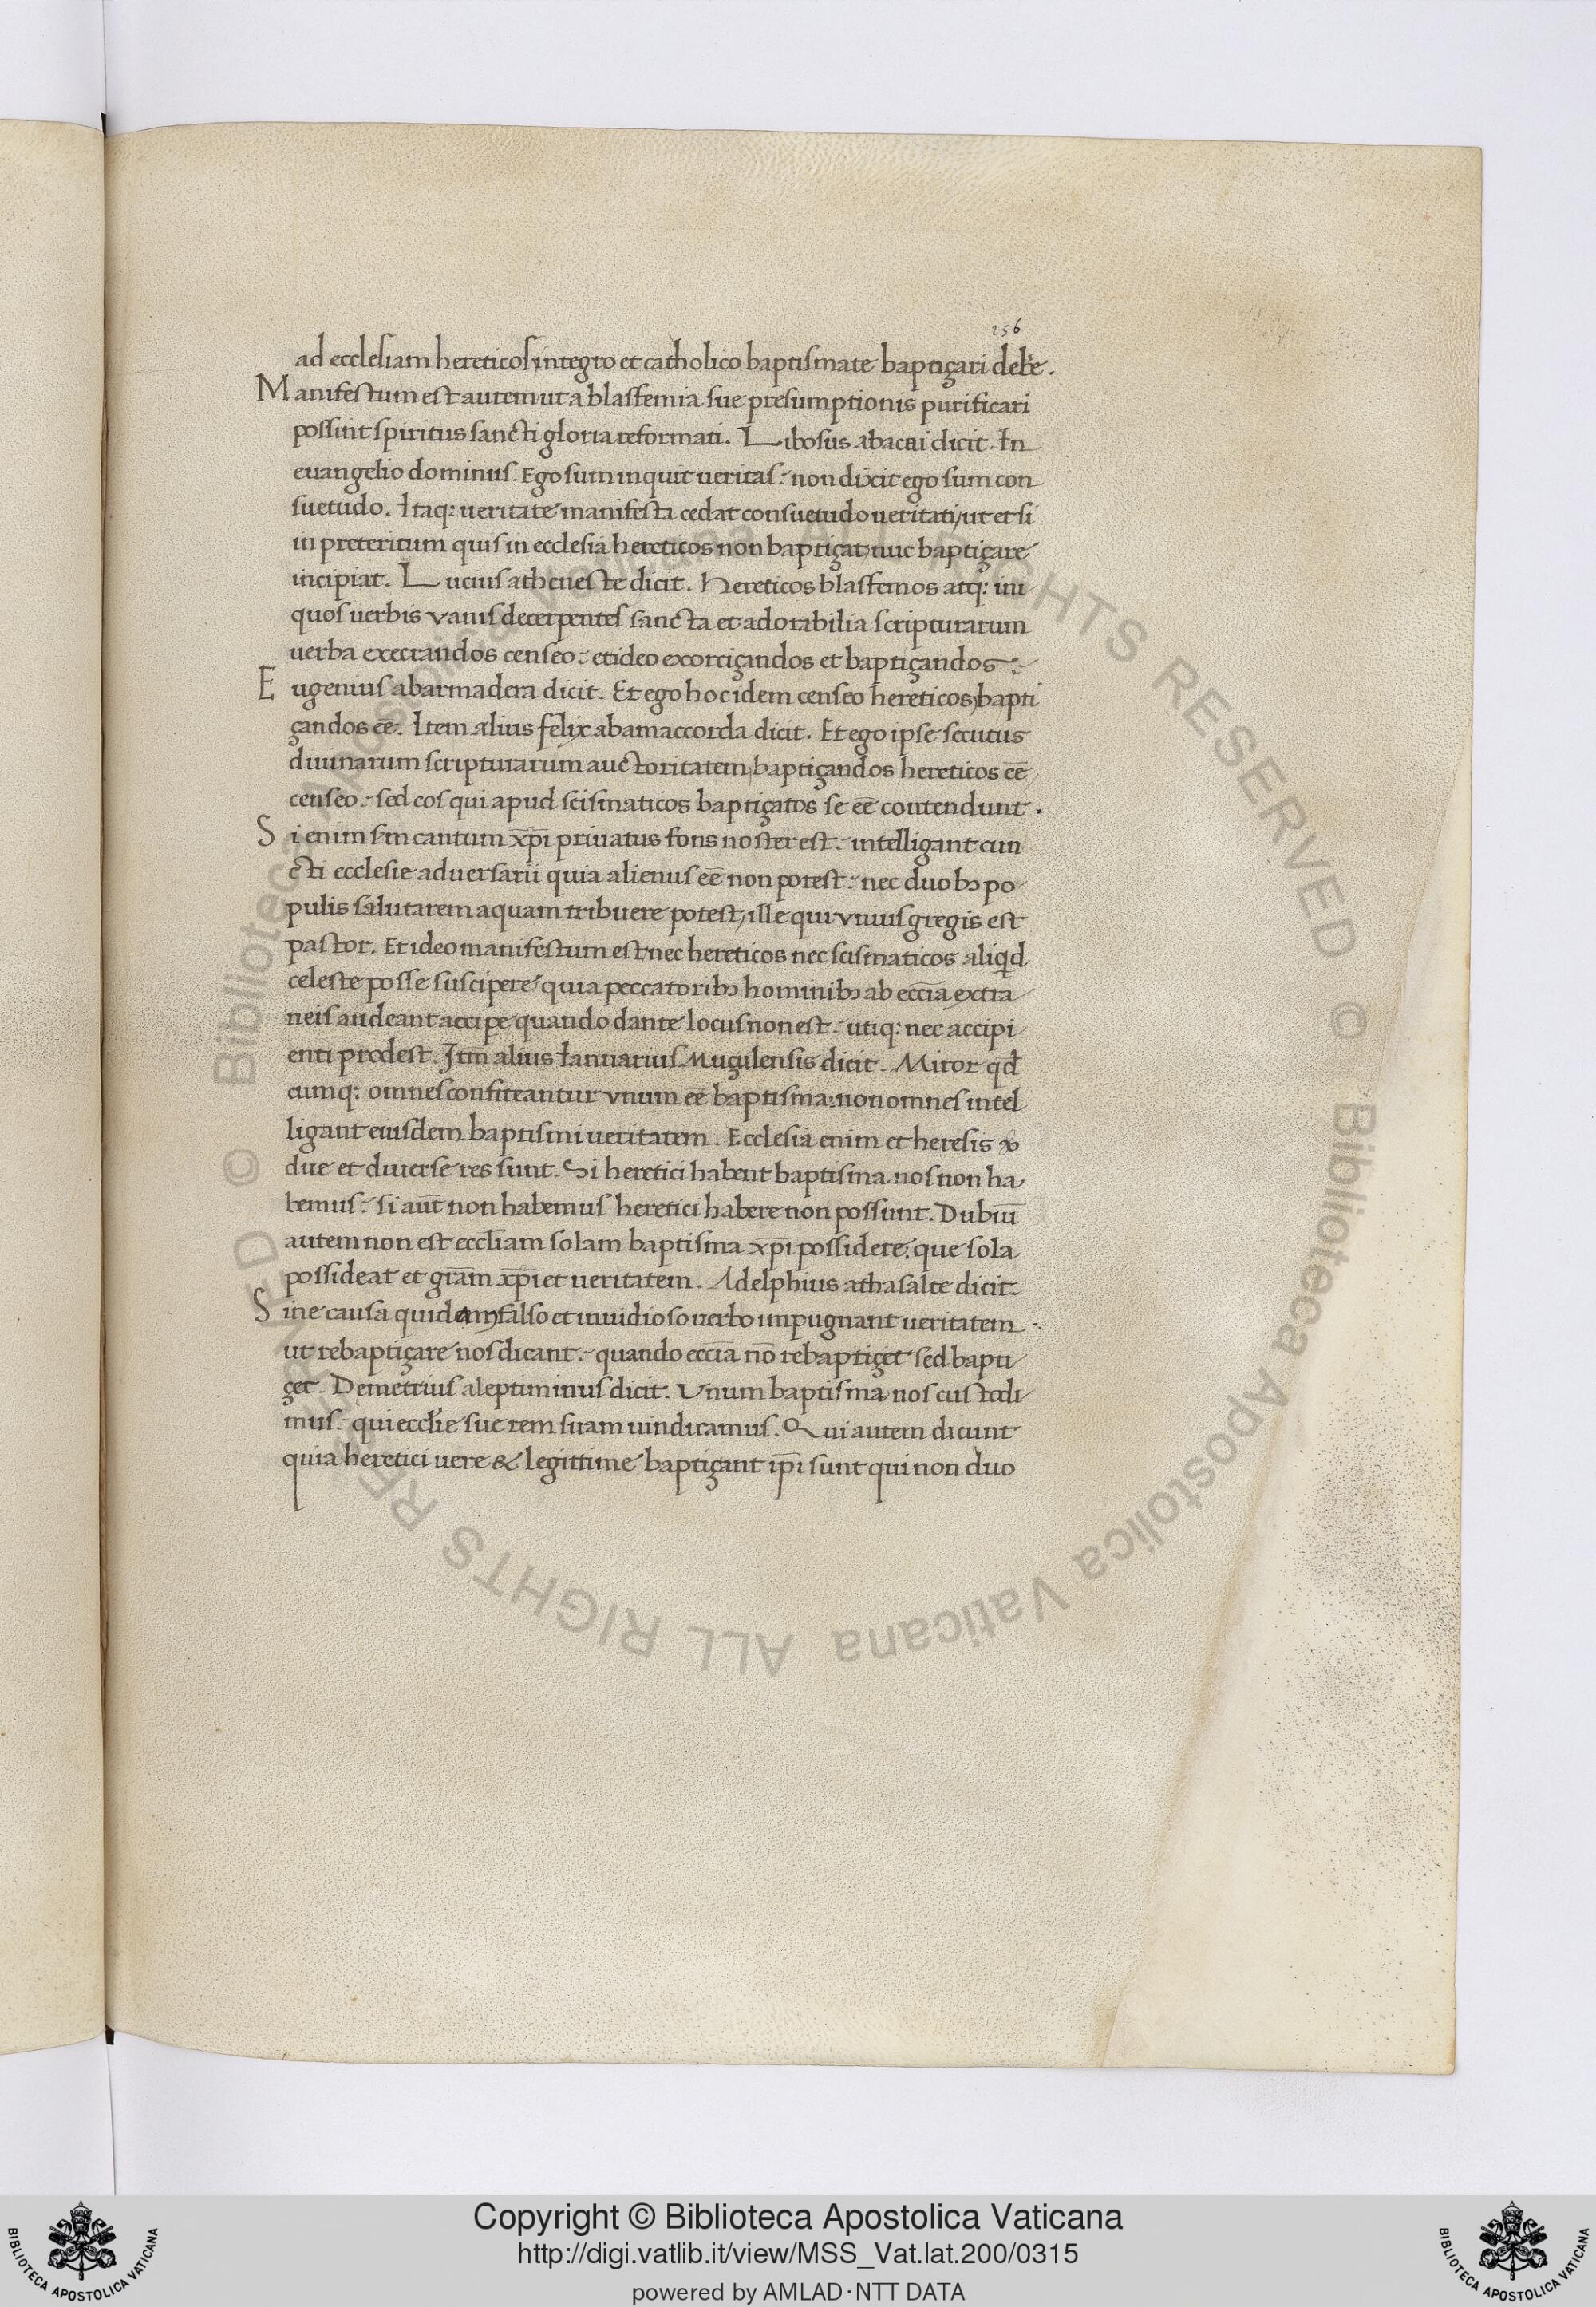 256
ad ecclesiam hereticos, integro et catholico baptismate baptiçari debe͞.
Manifestum est autem ut a blasfemia sue presumptionis purificari
possint spiritus sancti gloria reformati. Libosus abacai dicit. In
euangelio dominus. Ego sum inquit ueritas: non dixit ego sum con
suetudo. Itaq: ueritate manifesta cedat consuetudo ueritati, ut et si
in preteritum quis in ecclesia hereticos non baptiçat, nuc baptiçare
incipiat. Lucius atheneste dicit. Hereticos blasfemos atq: ini
quos uerbis vanis decerpentes sancta et adorabilia scripturarum
uerba execrandos censeo: et ideo exorciçandos et baptiçandos:
Eugenius abarmadera dicit. Et ego hoc idem censeo hereticos, bapti
çandos ee͞. Item alius felix abamaccorda dicit. Et ego ipse secutus
diuinarum scripturarum auctoritatem, baptiçandos hereticos ee͞
censeo. sed eos qui apud scismaticos baptiçatos se ee͞ contendunt.
Si enim sm͞ cantum xp͞i priuatus fons noster est. intelligant cun
cti ecclesie aduersarii quia alienus ee͞ non potest: nec duobꝫ po
pulis salutarem aquam tribuere potest, ille qui vnius gregis est
pastor. Et ideo manifestum est, nec hereticos nec scismaticos aliqd͞
celeste posse suscipere quia peccatoribꝫ hominibꝫ ab ecc͞ia extra
neis audeant accipe quando dante locus non est. utiq: nec accipi
enti prodest. Itm͞ alius Ianuarius Muçulensis dicit. Miror qd͞
cumq: omnes confiteantur vnum ee͞ baptisma: non omnes intel
ligant eiusdem baptismi ueritatem. Ecclesia enim et heresis
due et diuerse res sunt. Si heretici habent baptisma nos non ha
bemus: si aut͞ non habemus heretici habere non possunt. Dubiu͞
autem non est eccl͞iam solam baptisma xp͞i possidere, que sola
possideat et gra͞m xp͞i et ueritatem. Adelphius athasalte dicit
Sine causa quidam, falso et inuidioso uerbo impugnant ueritatem
ut rebaptiçare nos dicant. quando ecc͞ia no͞ rebaptiçet sed bapti
çet. Demetrius aleptiminus dicit. Vnum baptisma nos custodi
mus. qui eccl͞ie sue rem suam uindicamus. Qui autem dicunt
quia heretici uere & legittime baptiçant ip͞i sunt qui non duo
Copyright © Biblioteca Apostolica Vaticana
http://digi.vatlib.it/view/MSS_Vat.lat.200/0315
powered by AMLAD·NTT DATA
BIBLIOTECA APOSTOLICA VATICANA
BIBLIOTECA APOSTOLICA VATICANA
© Biblioteca Apostolica Vaticana ALL RIGHTS RESERVED
© Biblioteca Apostolica Vaticana ALL RIGHTS RESERVED